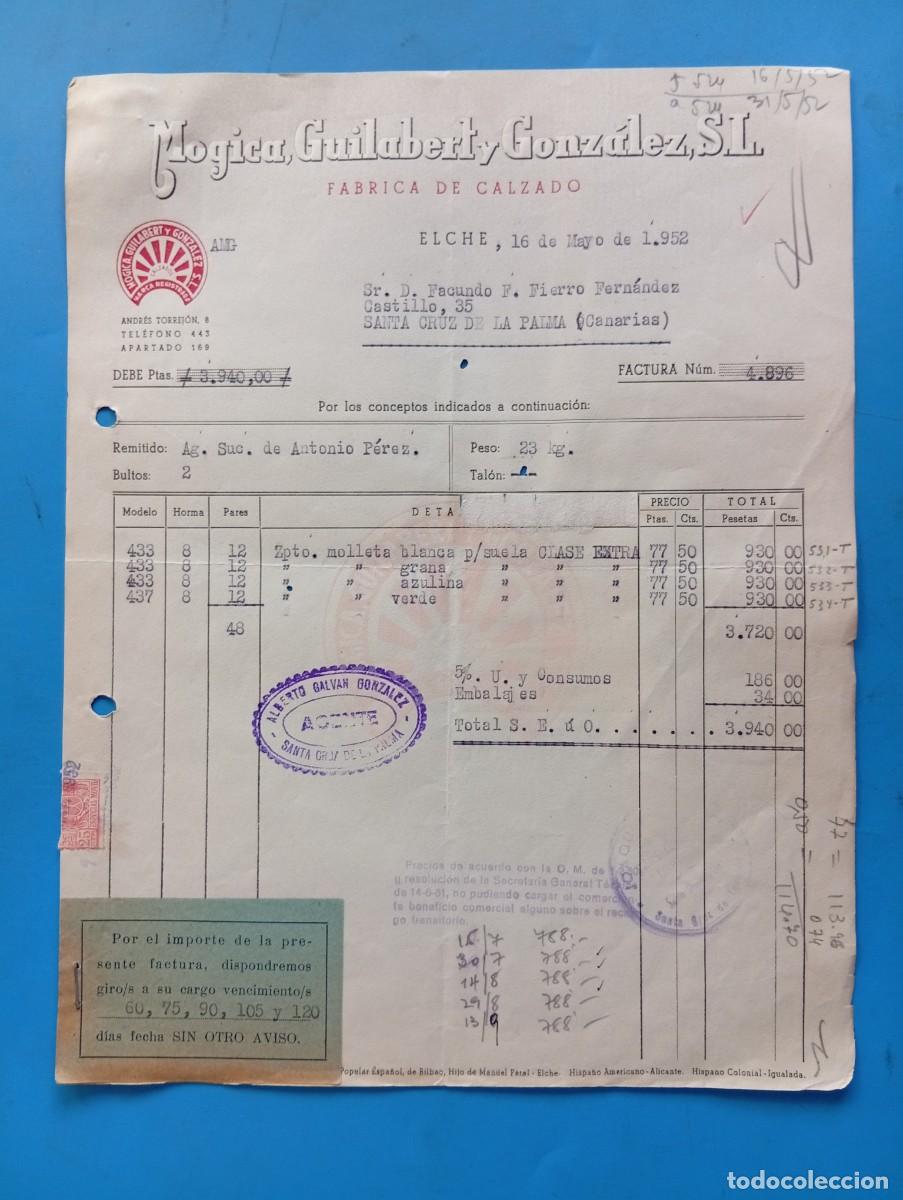 16/5/52
31/5/52
Mogica, Guilabert y González, S.L.
FABRICA DE CALZADO
MOGICA, GUILABERT Y GONZALEZ S.L.
CALZADOS
MARCA REGISTRADA
AMG
ELCHE, 16 de Mayo de 1.952
Sr. D. Facundo F. Fierro Fernández
Castillo, 35
SANTA CRUZ DE LA PALMA (Canarias)
ANDRÉS TORREJÓN, 8
TELÉFONO 443
APARTADO 169
DEBE Ptas. / 3.940,00 /
FACTURA Núm. 4.896
Por los conceptos indicados a continuación:
Remitido: Ag. Suc. de Antonio Pérez.
Peso: 23 kg.
Bultos: 2
Talón: -
Modelo Horma Pares DETA PRECIO TOTAL
Ptas. Cts. Pesetas Cts.
433 8 12 Zpto. molleta blanca p/suela CLASE EXTRA 77 50 930 00 531-T
433 8 12 " " grana " " " 77 50 930 00 532-T
433 8 12 " " azulina " " " 77 50 930 00 533-T
437 8 12 " " verde " " " 77 50 930 00 534-T
48 3.720 00
5% U. y Consumos 186 00
Embalajes 34 00
Total S. E. ú O. . . . . . . . 3.940 00
ALBERTO GALVAN GONZALEZ
AGENTE
- SANTA CRUZ DE LA PALMA -
25
Precios de acuerdo con la O. M. de
y resolución de la Secretaría General
de 14-6-51, no pudiendo cargar el
beneficio comercial alguno sobre el
go transitorio.
Santa
113.96
074
114.70
15/7 788.-
30/7 788.-
14/8 788.-
29/8 788.-
13/9 788.-
Por el importe de la pre-
sente factura, dispondremos
giro/s a su cargo vencimiento/s
60, 75, 90, 105 y 120
días fecha SIN OTRO AVISO.
Popular Español, de Bilbao, Hijo de Manuel Peral - Elche. Hispano Americano-Alicante. Hispano Colonial-Igualada.
todocoleccion